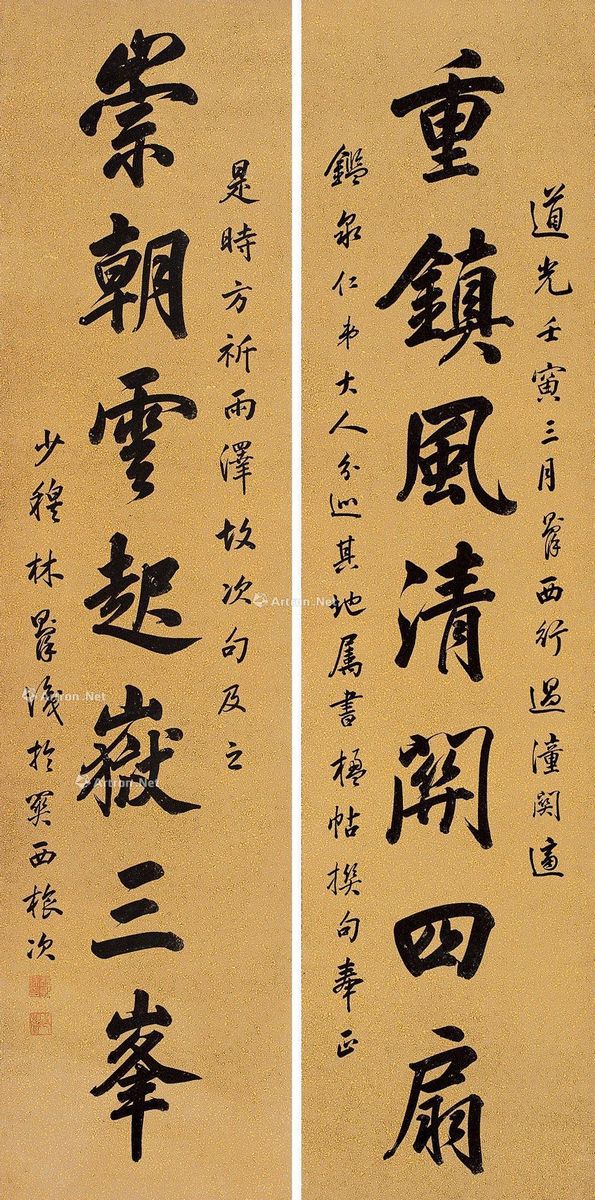 道光壬寅三月則徐西行過潼關適
重鎮風清關四扇
鑑泉仁弟大人分巡其地屬書楹帖撰句奉正
是時方祈雨澤故次句及之
崇朝雲起嶽三峯
少穆林則徐識於關西旅次
Artron.Net
Artron.Net
Artron.Net
Artron.Net